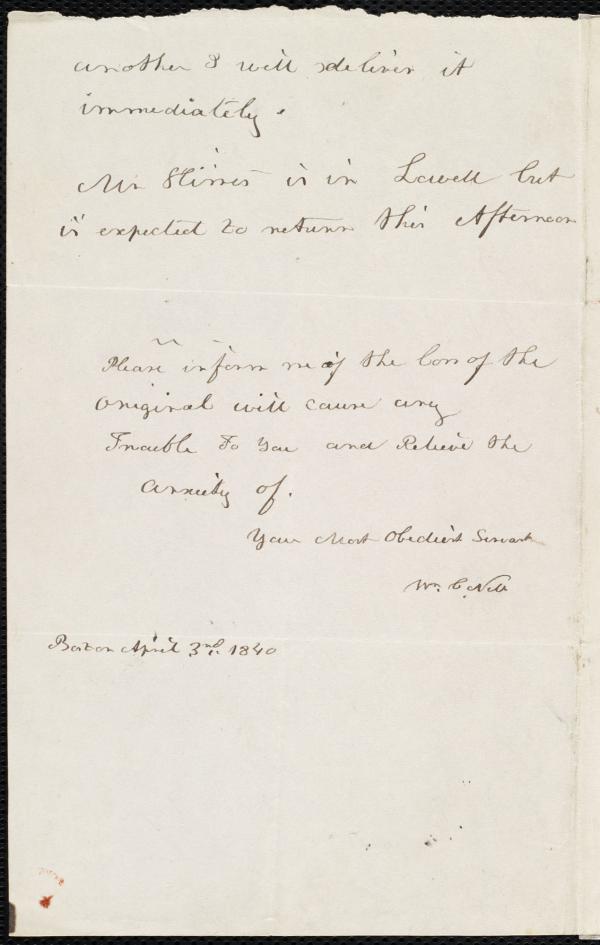 another I will deliver it
immediately.
Mr Himes is in Lowell but
is expected to return this Afternoon
Please inform me if the loss of the
Original will cause any
Trouble To You and Relieve the
anxiety of.
Your Most Obedient Servant
Wm. C. Nell
Boston April 3nd. 1840